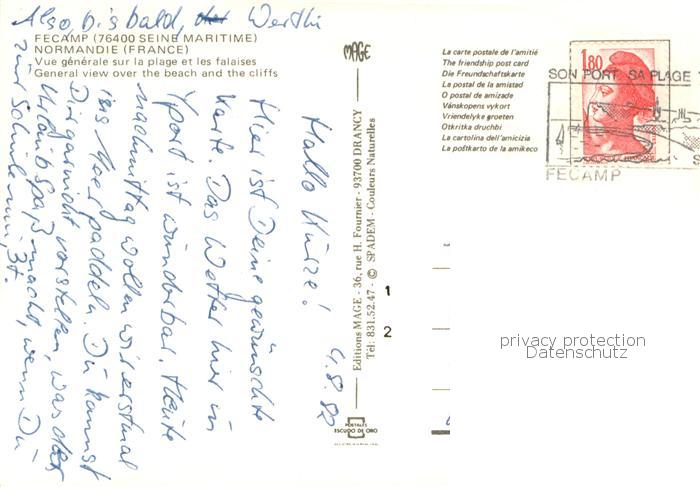 Also, bis bald, Werthi
FECAMP (76400 SEINE MARITIME)
NORMANDIE (FRANCE)
Vue générale sur la plage et les falaises
General view over the beach and the cliffs
Hallo Kurze!
4.8.82
Hier ist Deine gewünschte
Karte. Das Wetter hier in
Yport ist wunderbar. Heute
nachmittag wollen wir erstmal
ins Meer paddeln. Du kannst
Dir garnicht vorstellen, was der
Urlaub Spaß macht, wenn Du
zur Schule mußt.
MAGE
Editions MAGE - 36, rue H. Fournier - 93700 DRANCY
Tél: 831.52.47 - © SPADEM - Couleurs Naturelles
POSTALES
ESCUDO DE ORO
1
2
La carte postale de l'amitié
The friendship post card
Die Freundschaftskarte
La postal de la amistad
O postal de amizade
Vänskopens vykort
Vriendelyke groeten
Otkritka druchbi
La cartolina dell'amicizia
La poŝtkarto de la amikeco
1,80
SON PORT SA PLAGE
FECAMP
S
privacy protection
Datenschutz